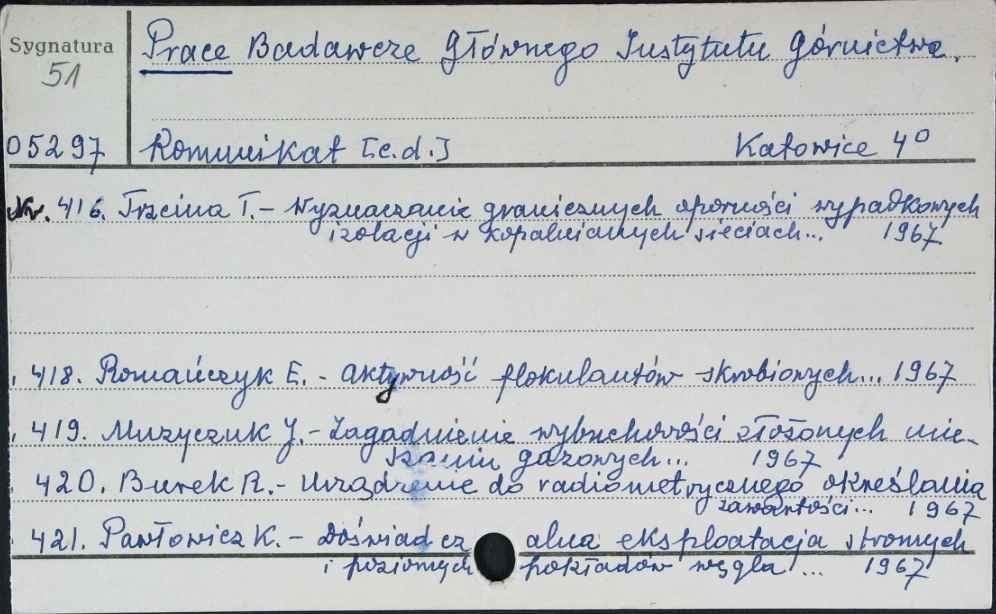 Sygnatura
51
Prace Badawcze Głównego Instytutu Górnictwa.
05297 Komunikat [c.d.] Katowice 4°
Nr. 416. Trzcina T. - Wyznaczanie granicznych oporności wypadkowych
izolacji w kopalnianych sieciach... 1967
418. Romańczyk E. - Aktywność flokulantów skrobiowych... 1967
419. Muzyczuk J. - Zagadnienie wybuchowości złożonych mie-
szanin gazowych... 1967
420. Burek R. - Urządzenie do radiometrycznego określania
zawartości... 1967
421. Pawłowicz K. - Doświadczalna eksploatacja stromych
i poziomych pokładów węgla ... 1967